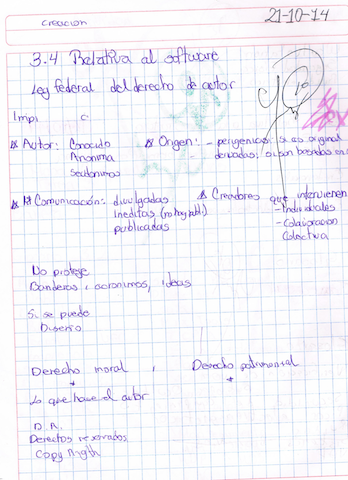 creacion
21-10-14
3.4 Relativa al software
Ley federal del derecho de autor
Impi
Autor: Conocido
Anonima
Seudonimos
Origen: - perigenicas: si es original
derivadas: si son basadas en
Comunicación: divulgadas
Ineditas
publicadas
Creadores que intervienen
- Individuales
- Colaboracion
Colectiva
No protege
Banderas, acronimos, ideas
Si se puede
Diseño
Derecho moral, Derecho patrimonial
Lo que hace el autor
D.A.
Derechos reservados
Copy Rigth